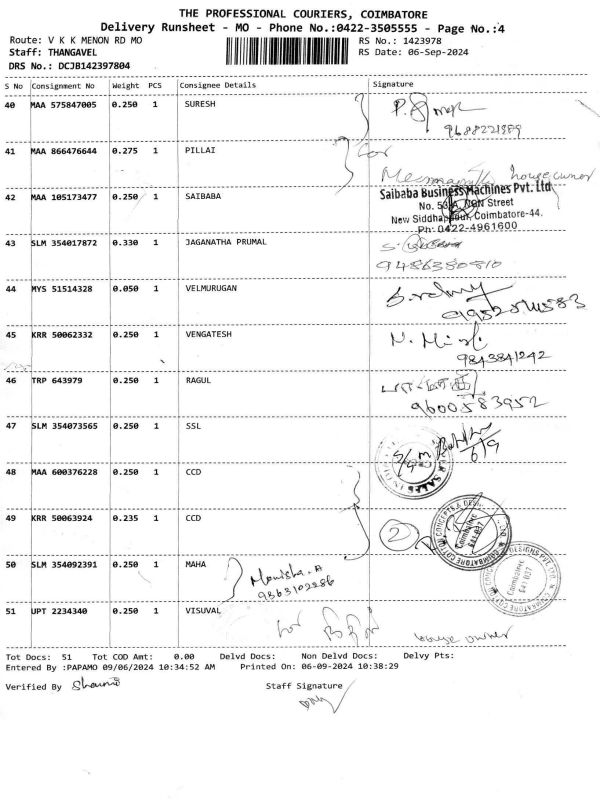 THE PROFESSIONAL COURIERS, COIMBATORE
Delivery Runsheet - MO - Phone No.:0422-3505555 - Page No.:4
Route: V K K MENON RD MO RS No.: 1423978
Staff: THANGAVEL RS Date: 06-Sep-2024
DRS No.: DCJB142397804
S No Consignment No Weight PCS Consignee Details Signature
40 MAA 575847005 0.250 1 SURESH
9688221989
41 MAA 866476644 0.275 1 PILLAI for
house owner
42 MAA 105173477 0.250 1 SAIBABA Saibaba Business Machines Pvt. Ltd
No. 53 A, NGN Street
New Siddhapudur, Coimbatore-44.
Ph: 0422-4961600
43 SLM 354017872 0.330 1 JAGANATHA PRUMAL
9486380810
44 MYS 51514328 0.050 1 VELMURUGAN
45 KRR 50062332 0.250 1 VENGATESH
9843841242
46 TRP 643979 0.250 1 RAGUL
9600583952
47 SLM 354073565 0.250 1 SSL
6/9
48 MAA 600376228 0.250 1 CCD
49 KRR 50063924 0.235 1 CCD 2
50 SLM 354092391 0.250 1 MAHA Manisha.A
9863102286
51 UPT 2234340 0.250 1 VISUVAL for
house owner
Tot Docs: 51 Tot COD Amt: 0.00 Delvd Docs: Non Delvd Docs: Delvy Pts:
Entered By :PAPAMO 09/06/2024 10:34:52 AM Printed On: 06-09-2024 10:38:29
Verified By Staff Signature